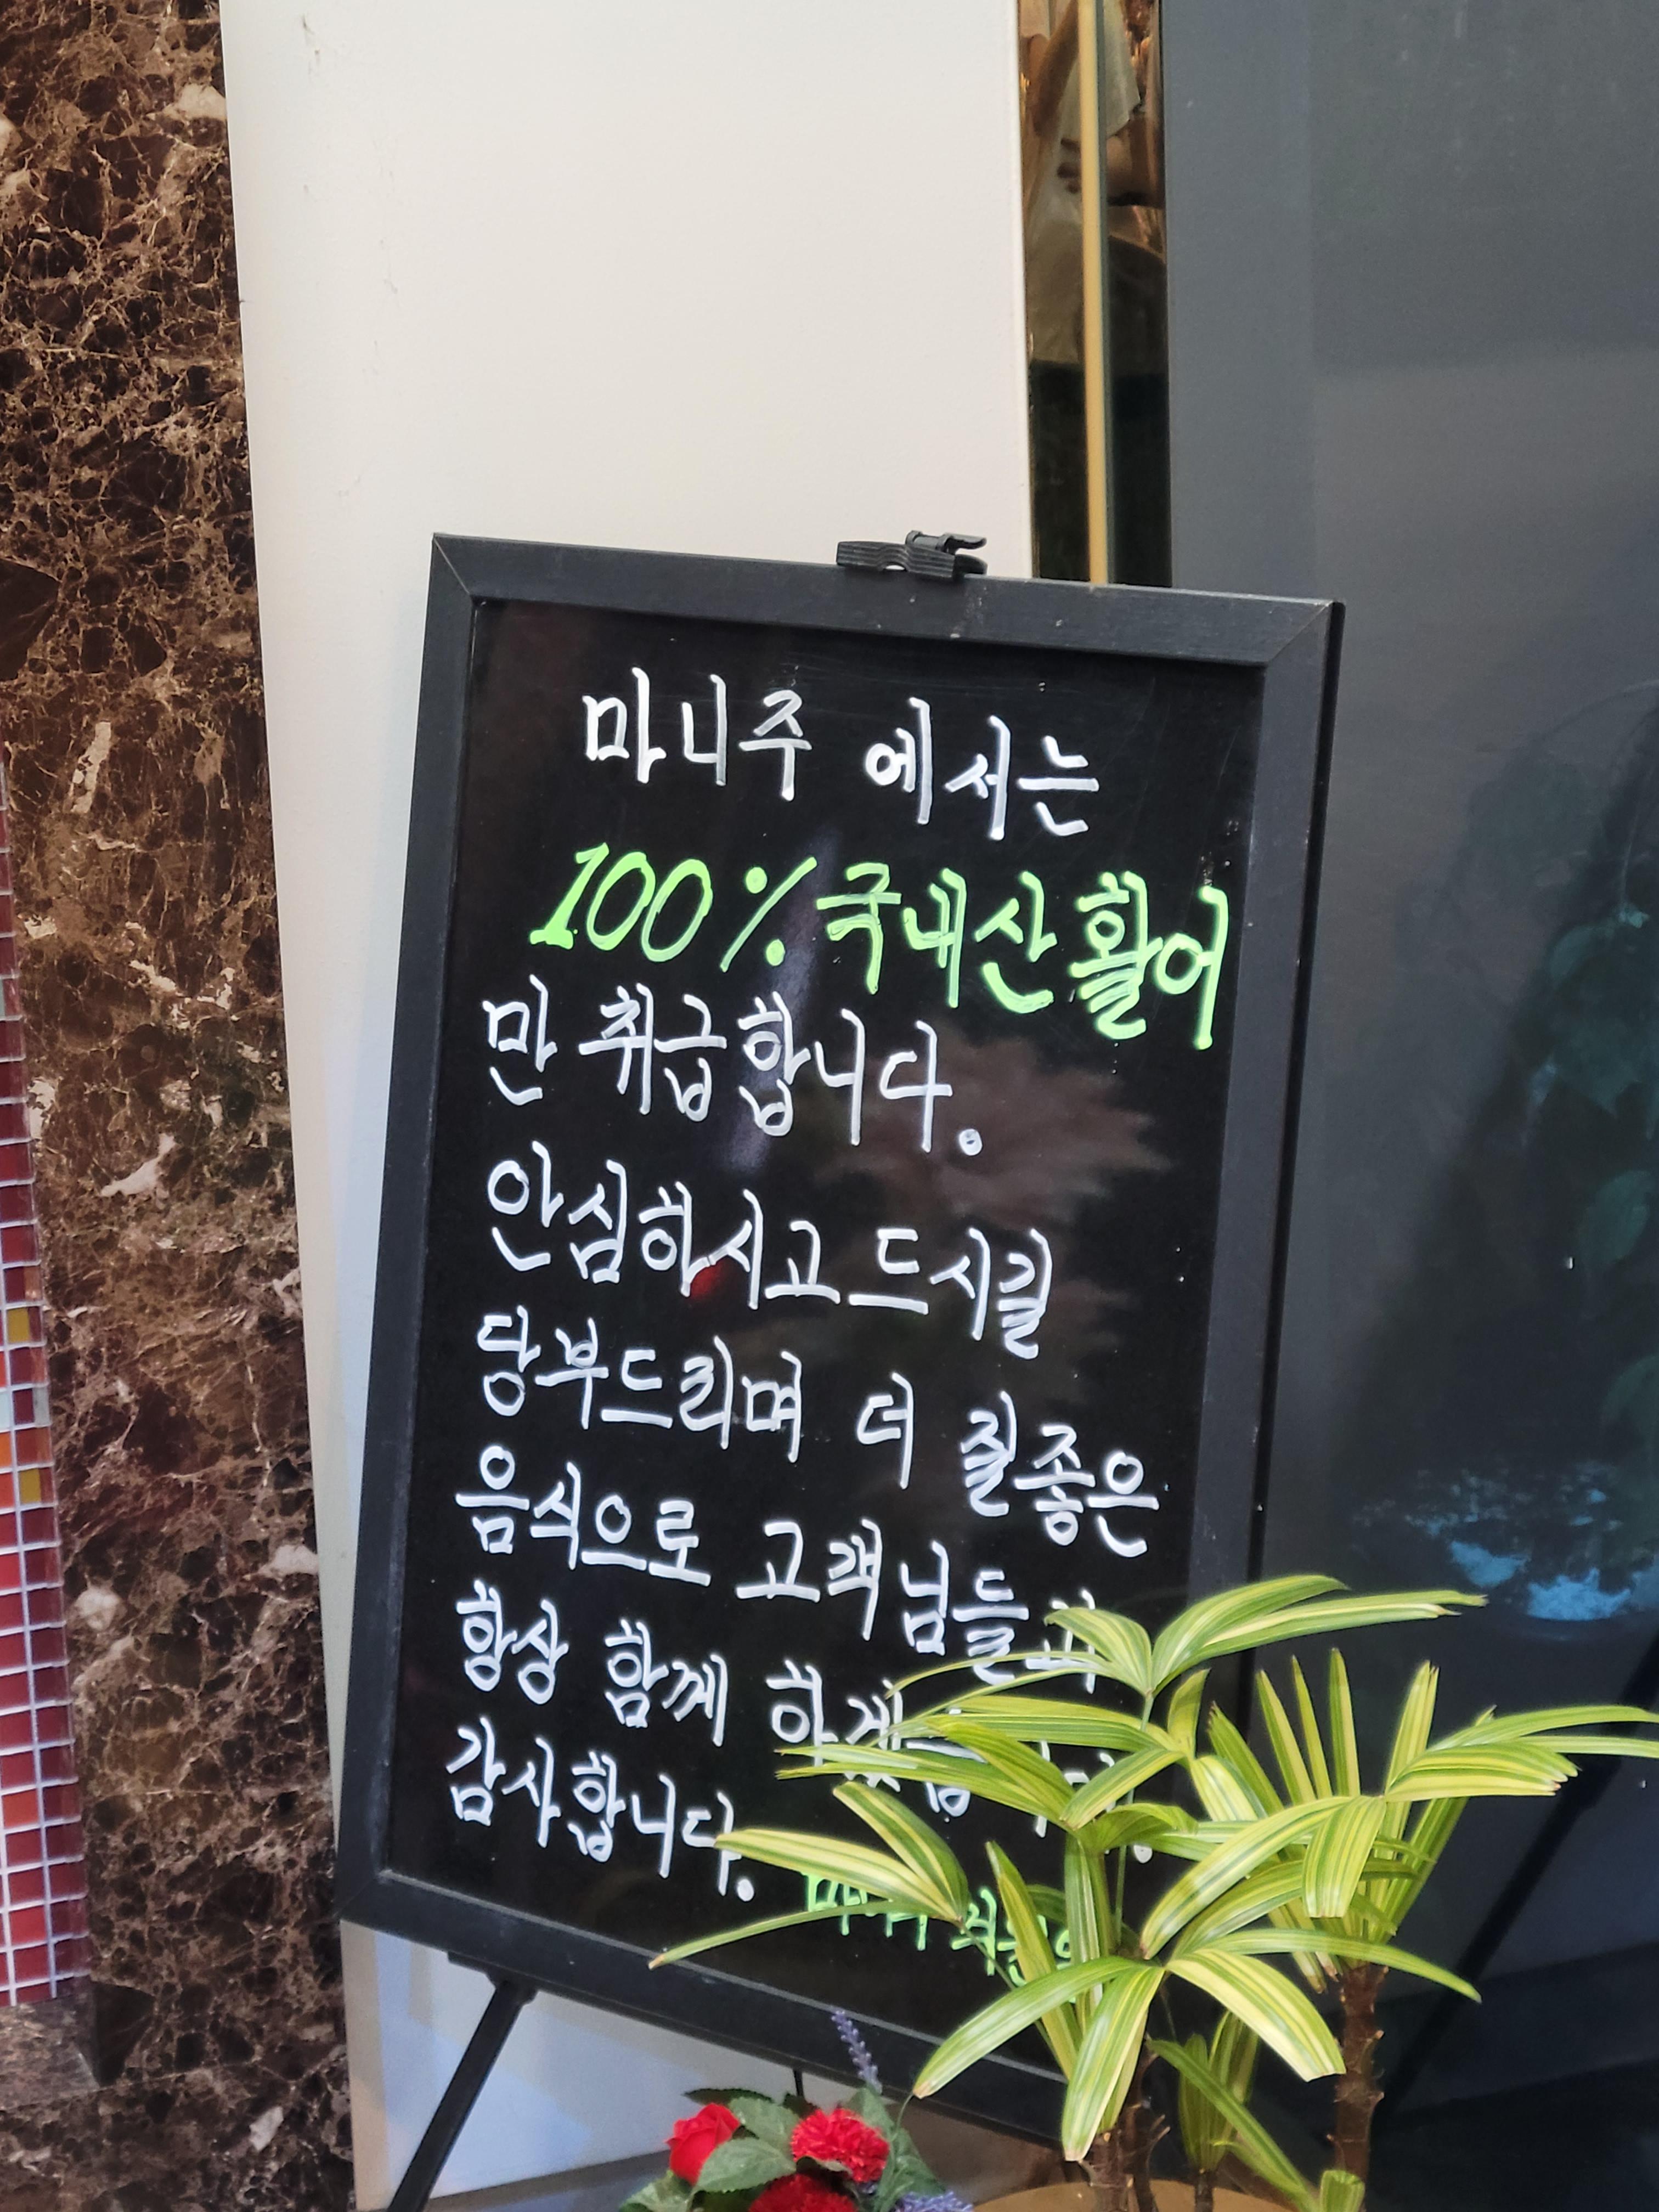 마니주 에서는
100% 국내산 활어
만 취급합니다.
안심하시고 드시길
당부드리며 더 질좋은
음식으로 고객님들과
항상 함께
감사합니다.